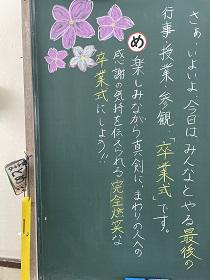 さぁ、いよいよ今日はみんなとやる最後の
行事・授業・参観、「卒業式」です。
め 楽しみながら真剣に、まわりの人への
感謝の気持を伝えられる完全燃笑な
卒業式にしよう!!